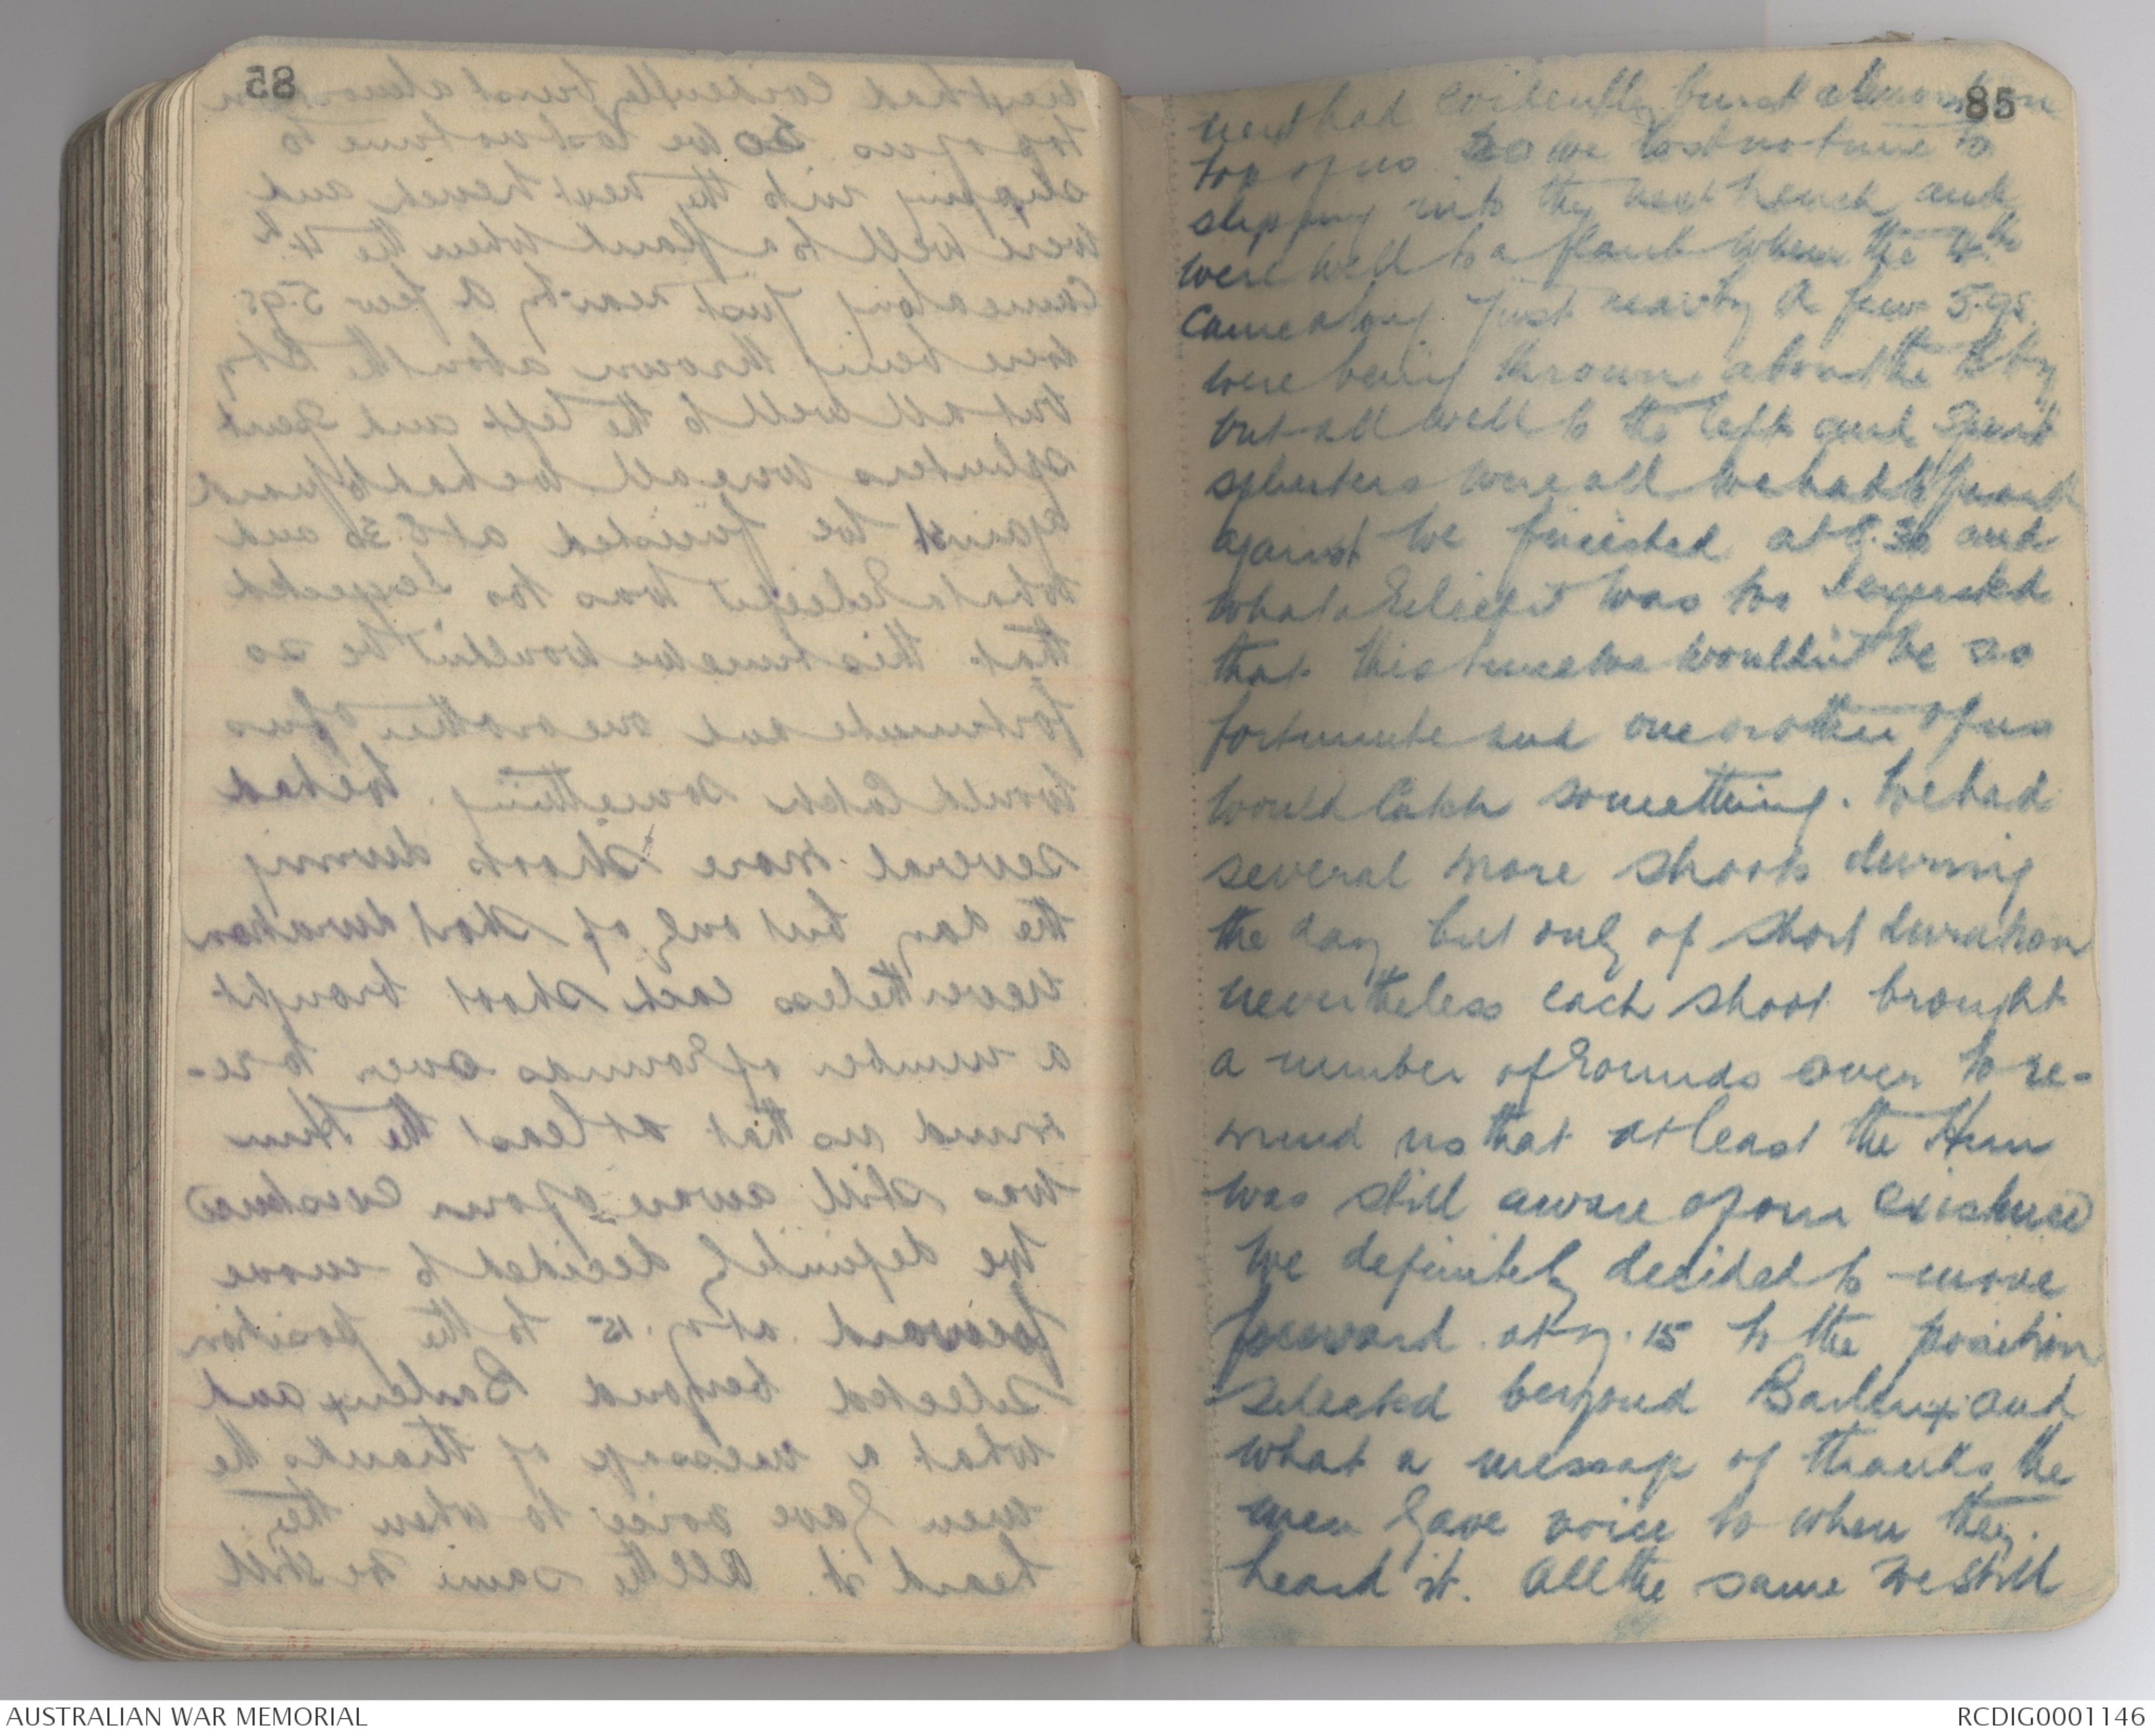 85
next had evidently burst almost on
top of us so we lost no time to
slipping into the next trench and
were well to a flank when the 4th
came along just nearby a few 5.9s
were being thrown about the Bty
but all well to the left and spent
splinters were all we had to guard
against we finished at 8.30 and
what a relief it was too I expected
that this time we wouldn't be so
fortunate and one or other of us
would catch something. We had
several more shoots during
the day but only of short duration
nevertheless each shoot brought
a number of rounds over to re-
mind us that at least the Hun
was still aware of our existence
We definitely decided to move
forward at 7.15 to the position
selected beyond Barleux and
what a message of thanks the
men gave voice to when they
heard it. All the same we still
AUSTRALIAN WAR MEMORIAL
RCDIG0001146